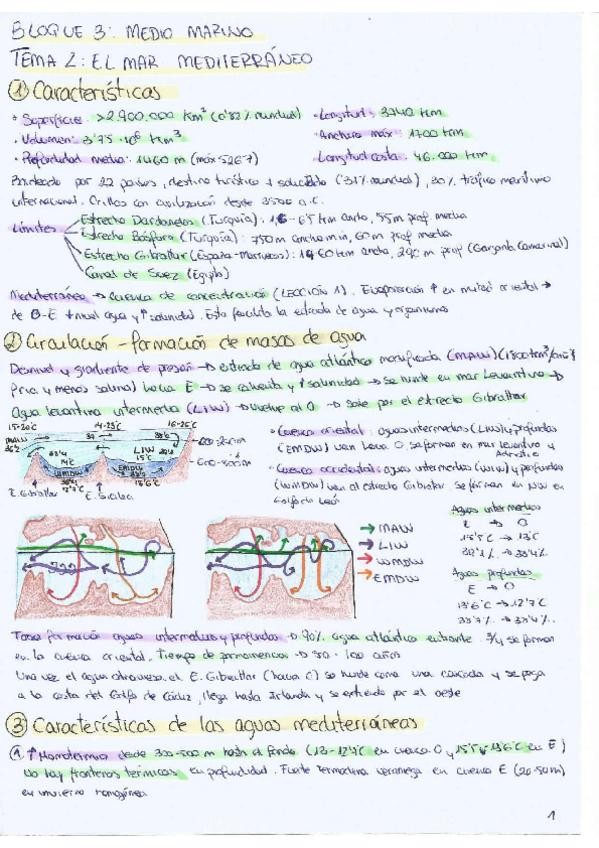 BLOQUE 3: MEDIO MARINO
TEMA 2: EL MAR MEDITERRÁNEO
① Características
• Superficie: >2.900.000 Km² (0'82% mundial) • Longitud: 3740 km
• Volumen: 3'75·10⁶ Km³ Anchura máx: 1700 km
• Profundidad media: 1460 m (máx 5267) Longitud costa: 46.000 km
por 22 países, destino turístico + solicitado (31% mundial), 30% tráfico marítimo
internacional. Orillas con civilización desde 3500 a.C.
Límites
Estrecho Dardanelos (Turquía): 1,6-6'5 km ancho, 55m prof media
Estrecho Bósforo (Turquía): 750m ancho min, 60m prof media
Estrecho Gibraltar (España-Marruecos): 14-60 km ancho, 290 m prof (Garganta Camarinal)
Canal de Suez (Egipto)
Mediterráneo → Cuenca de concentración (LECCIÓN 1). Evaporación ↑ en mitad oriental →
de O-E ↓ nivel agua y ↑ salinidad. Esto facilita la entrada de agua y organismos
② Circulación - formación de masas de agua
Desnivel y gradiente de presión → entrada de agua atlántica modificada (MAW)
fría y menos salina) hacia E → se calienta y ↑ salinidad → se hunde en mar Levantino →
Agua levantina intermedia (LIW) → vuelve al O → sale por el estrecho Gibraltar
15-20°C 14-23°C 16-26°C
MAW
LIW
15°C
WMDW
EMDW
13'6°C
E. Gibraltar E. Sicilia
• Cuenca oriental: aguas intermedias (LIW) y profundas
(EMDW) van hacia O. Se forman en mar Levantino y
Adriático
• Cuenca occidental: aguas intermedias (WIW) y profundas
(WMDW) van al estrecho Gibraltar. Se forman en NW en
Golfo de León
→ MAW
→ LIW
→ WMDW
→ EMDW
Aguas intermedias
E → O
15'5°C → 13°C
39'1% → 38'4%
Aguas profundas
E → O
13'6°C → 12'7°C
38'7% → 38'4%
Tasa formación aguas intermedias y profundas → 90% agua atlántica entrante. 3/4 se forman
en la cuenca oriental. Tiempo de permanencia → 50-100 años
Una vez el agua atraviesa el E. Gibraltar (hacia O) se hunde como una cascada y se pega
a la costa del Golfo de Cádiz, llega hasta Irlanda y se extiende por el oeste
③ Características de las aguas mediterráneas
① ↑ Homotermia desde 300-500 m hasta el fondo (13-12'4°C en cuenca O y 15'5-13'6°C en E)
No hay fronteras térmicas en profundidad. Fuerte termoclina veraniega en cuenca E (20-50m)
en invierno homogénea
1